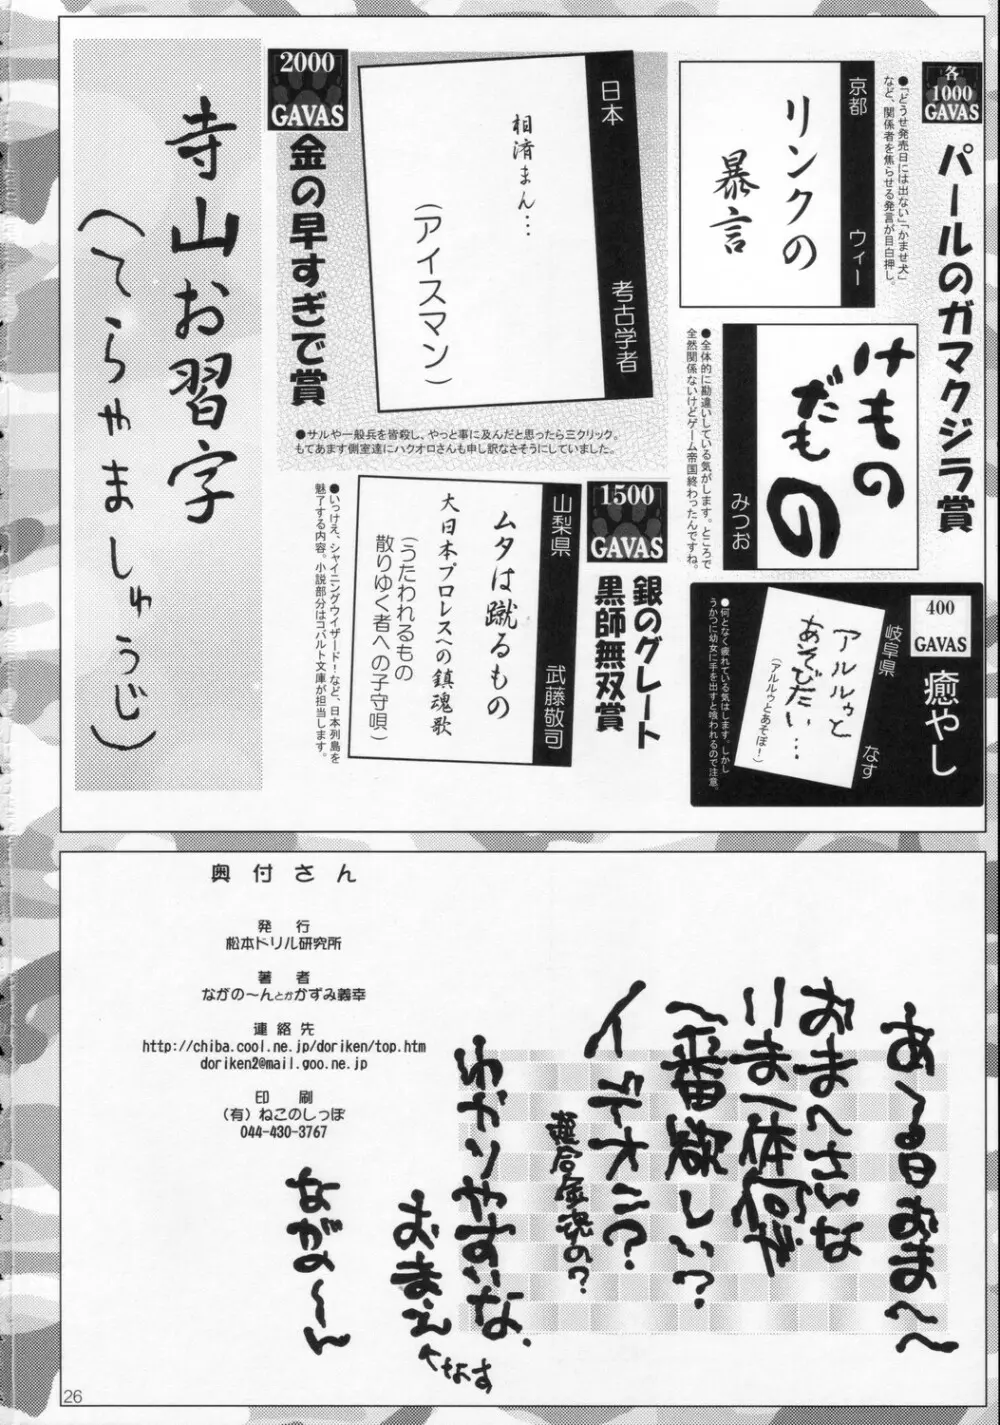 各
1000
GAVAS
パールのガマクジラ賞
京都
ウィー
リンクの
暴言
●「どうせ発売日には出ない」「かませ犬」
など、関係者を焦らせる発言が目白押し。
みつお
けもの
だもの
●全体的に勘違いしている気がします。ところで
全然関係ないけどゲーム帝国終わったんですね。
400
GAVAS
癒やし
岐阜県
なす
アルルゥと
あそびたい…
(アルルゥとあそぼ！)
●何となく疲れている気はします。しかし
うかつに幼女に手を出すと喰われるので注意。
2000
GAVAS
金の早すぎで賞
日本
考古学者
相済まん…
(アイスマン)
●サルや一般兵を皆殺し、やっと事に及んだと思ったら三クリック。
もてあます側室達にハクオロさんも申し訳なさそうにしていました。
1500
GAVAS
銀のグレート
黒師無双賞
山梨県
武藤敬司
ムタは蹴るもの
大日本プロレスへの鎮魂歌
(うたわれるもの
散りゆく者への子守唄)
●いっけえ、シャイニングウィザード！など、日本列島を
魅了する内容。小説部分はコバルト文庫が担当します。
寺山お習字
(てらやましゅうじ)
奥付さん
発行
松本ドリル研究所
著者
ながの～んとかかずみ義幸
連絡先
http://chiba.cool.ne.jp/doriken/top.htm
doriken2@mail.goo.ne.jp
印刷
(有)ねこのしっぽ
044-430-3767
あ〜る日おま〜〜
おまへさんな
いま一体何が
一番欲しい？
イデオン？
超合金魂の？
わかりやすいな、
おまえ
←なす
ながの〜ん
26